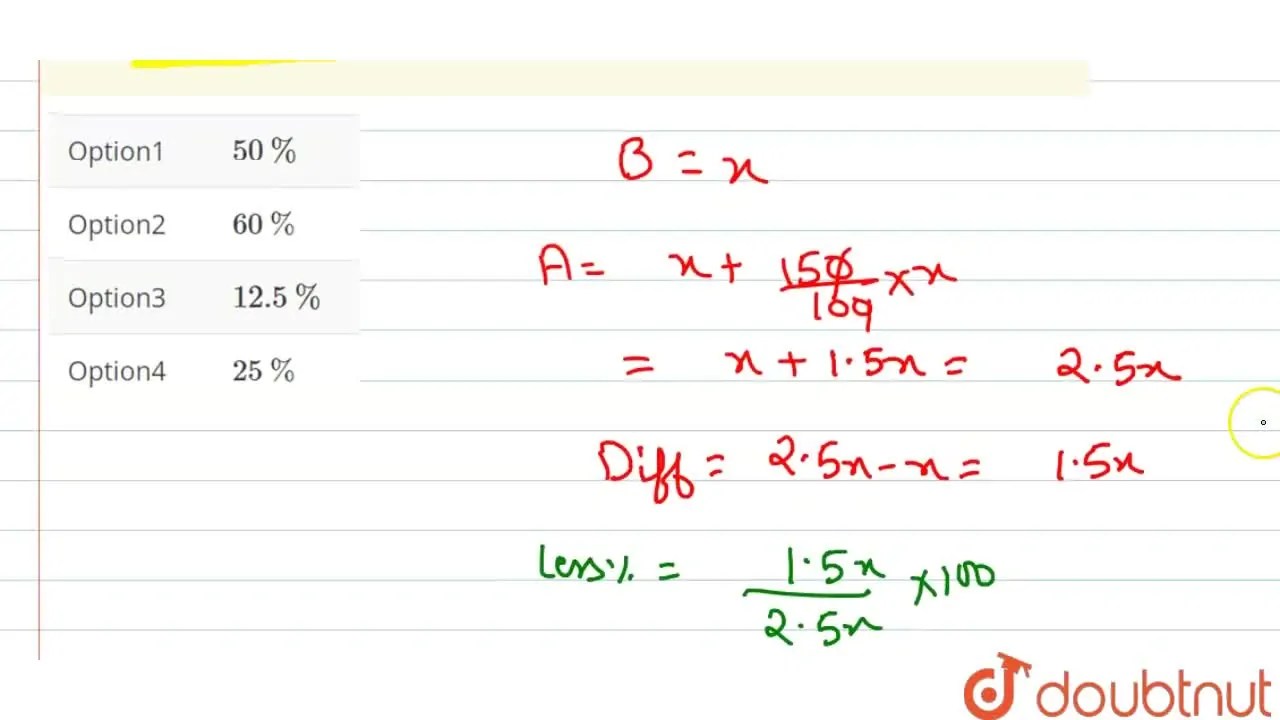 Option1 50 %
Option2 60 %
Option3 12.5 %
Option4 25 %
B = x
A = x + 150/100 × x
= x + 1.5x = 2.5x
Diff = 2.5x - x = 1.5x
Less% = 1.5x/2.5x × 100
doubtnut